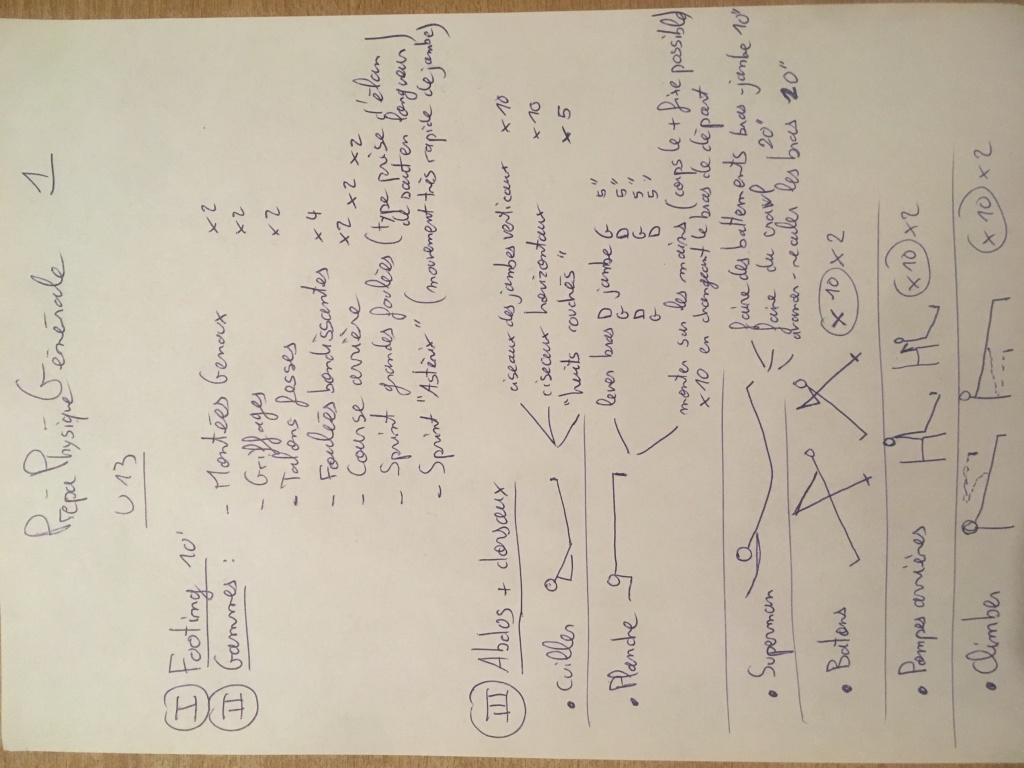 Prépa-Physique Générale 1
U13
I Footing 10'
II Gammes :
- Montées Genoux x2
- Griffages x2
- Talons fesses x2
- Foulées bondissantes x4
- Course arrière x2
- Sprint grandes foulées (type prise d'élan de saut en longueur) x2
- Sprint "Astérix" (mouvement très rapide de jambe) x2
III Abdos + dorsaux
• Cuiller
ciseaux des jambes verticaux x10
ciseaux horizontaux x10
"huits couchés" x5
• Planche
lever bras D jambe G 5"
G D 5"
D G 5"
G D 5"
monter sur les mains (corps le + fixe possible)
x10 en changeant le bras de départ
• Superman
faire des battements bras jambe 10"
faire du crawl 20"
avancer-reculer les bras 20"
• Batons x10 x2
• Pompes arrières x10 x2
• Climber x10 x2